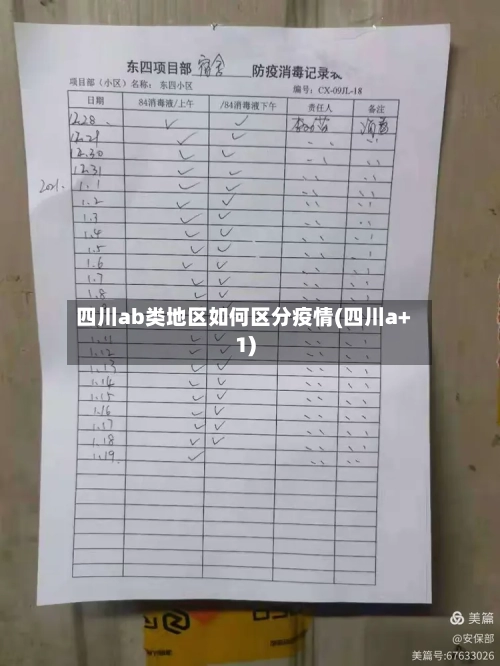 东四项目部 宿舍 防疫消毒记录表
项目部（小区）名称：东四小区 编号：CX-09JL-18
日期 84消毒液/上午 /84消毒液下午 责任人 备注
12.28 ✓ ✓ 消毒
12.29 ✓ ✓ 、、 、、
12.30 ✓ ✓ 、、 、、
12.31 ✓ ✓ 、、 、、
2021. 1.1 ✓ ✓ 、、 、、
1.2 ✓ ✓ 、、 、、
1.3 ✓ ✓ 、、 、、
1.4 ✓ ✓ 、、 、、
1.5 ✓ ✓ 、、 、、
1.6 ✓ ✓ 、、 、、
1.7 ✓ ✓ 、、 、、
1.8 ✓ ✓ 、、 、、
四川ab类地区如何区分疫情(四川a+
1)
1.11 ✓ ✓ 、、 、、
1.12 ✓ ✓ 、、 、、
1.13 ✓ ✓ 、、 、、
1.14 ✓ ✓ 、、 、、
1.15 ✓ ✓ 、、 、、
1.16 ✓ ✓ 、、 、、
1.17 ✓ ✓ 、、 、、
1.18 ✓ ✓ 、、 、、
1.19. ✓ 、、 、、
美篇
@安保部
美篇号:67633026